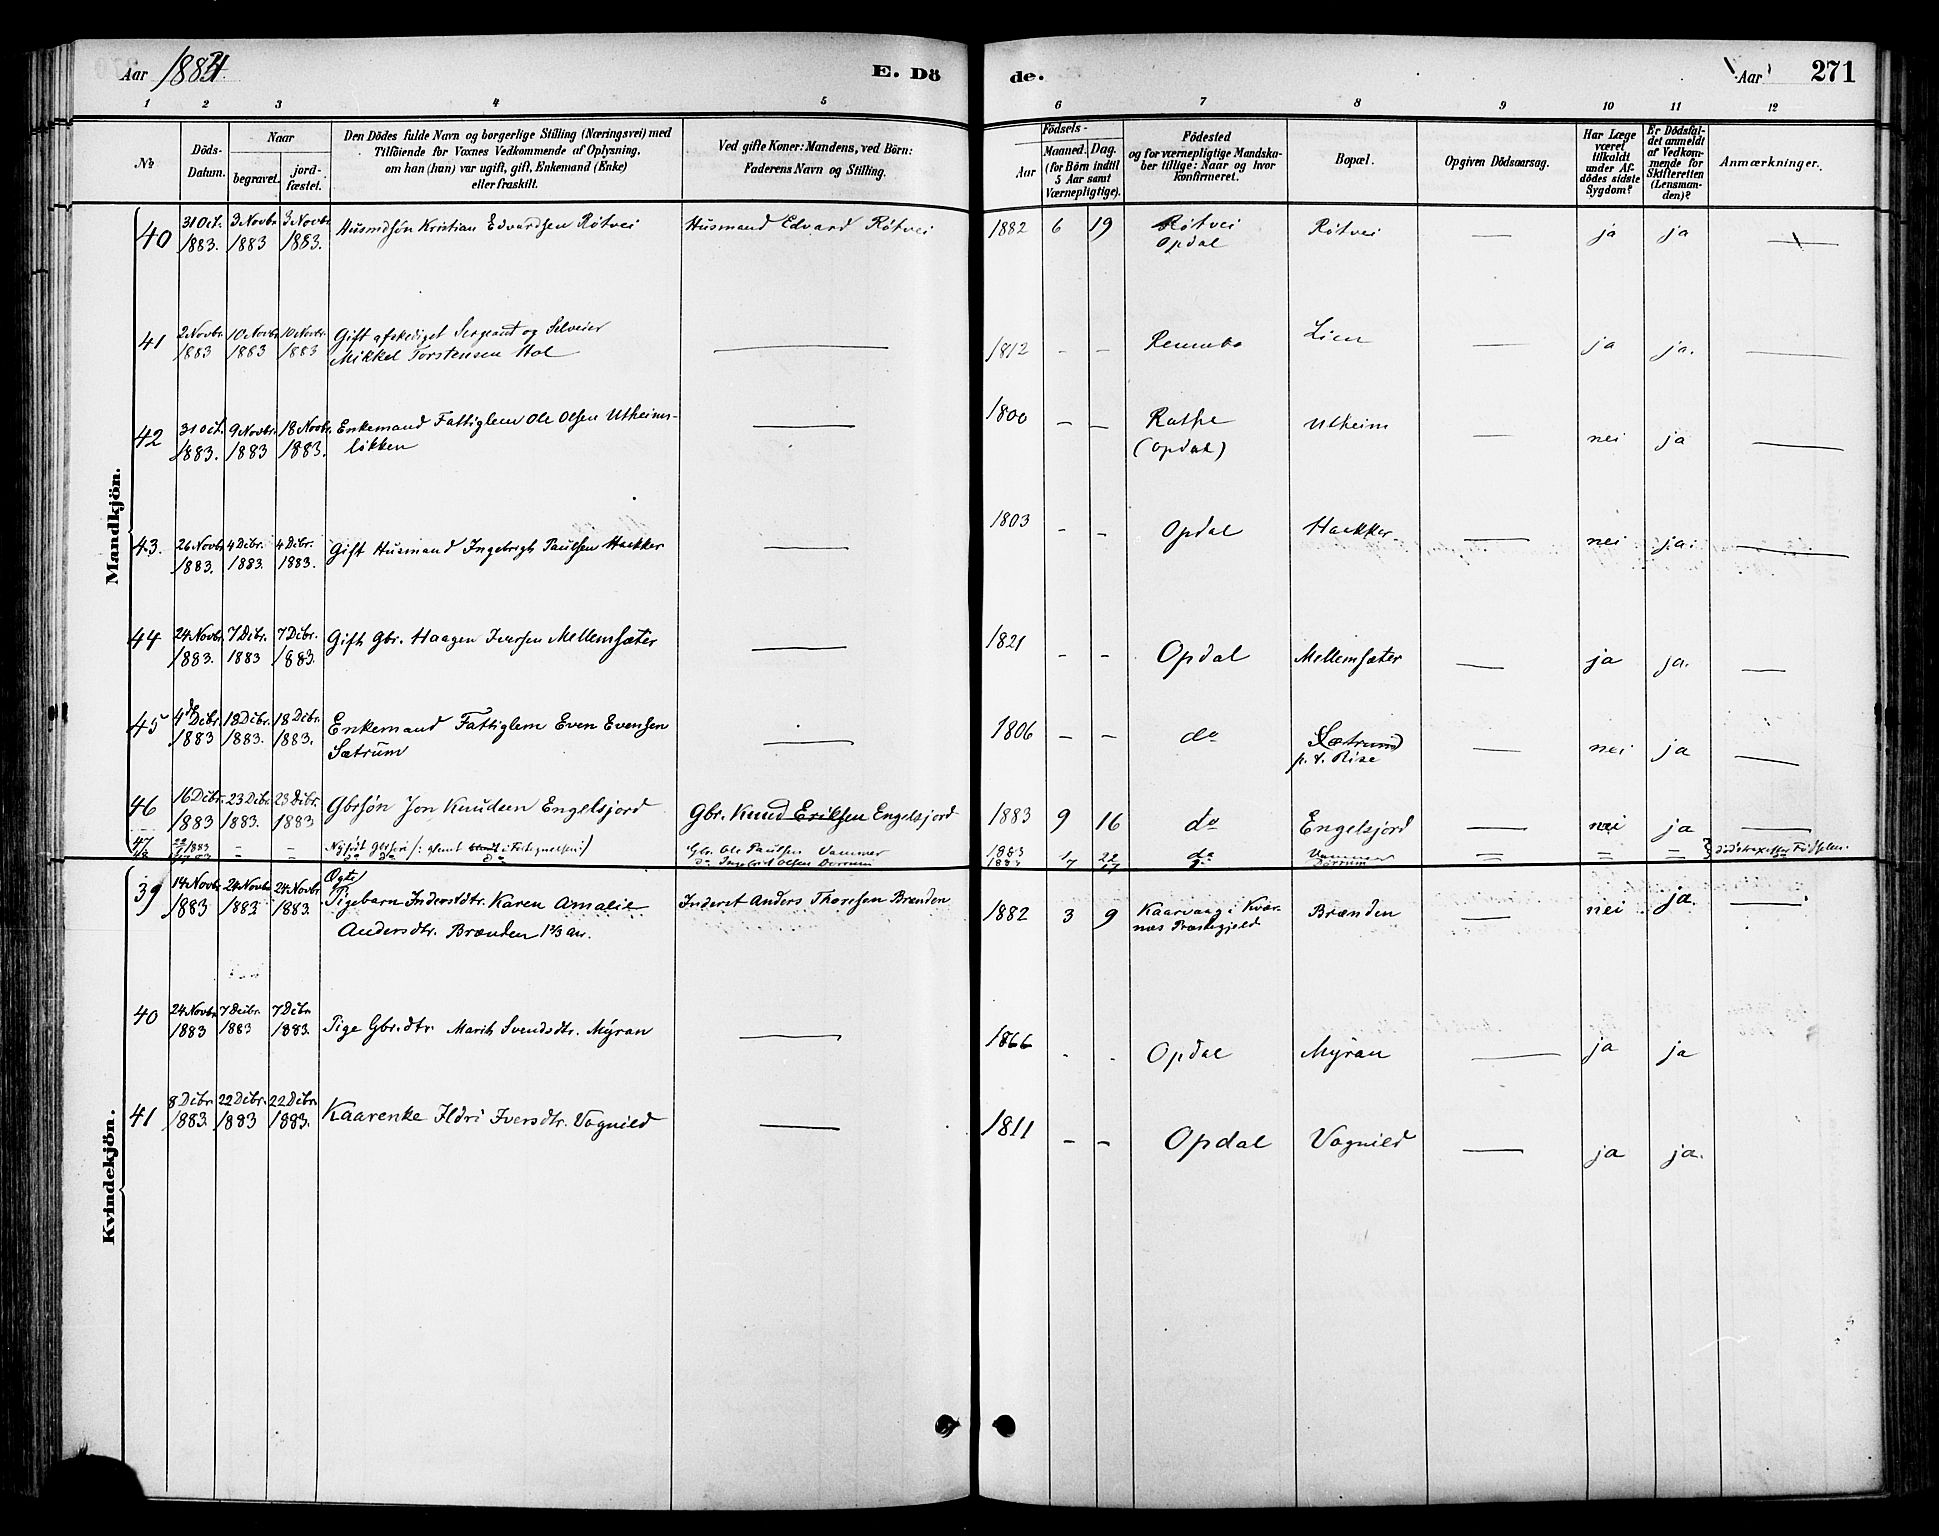 Aar 1883
E. Dö
de.
Aar
271
1 2 3 4 5 6 7 8 9 10 11 12
№
Döds-
Datum.
Naar
begravet.
jord-
fæstet.
Den Dödes fulde Navn og borgerlige Stilling (Næringsvei) med
Tilföiende for Voxnes Vedkommende af Oplysning,
om han (hun) var ugift, gift, Enkemand (Enke)
eller fraskilt.
Ved gifte Koner: Mandens, ved Börn:
Faderens Navn og Stilling.
Födsels-
Aar
Maaned. Dag.
(for Börn indtil
5 Aar samt
Værnepligtige).
Födested
og for værnepligtige Mandska-
ber tillige: Naar og hvor
konfirmeret.
Bopæl.
Opgiven Dödsaarsag.
Har Læge
været
tilkaldt
under Af-
dödes sidste
Sygdom?
Er Dödsfal-
det anmeldt
af Vedkom-
mende for
Skifteretten
(Lensman-
den)?
Anmærkninger.
Mandkjön.
40 31 Oct. 1883. 3 Novbr. 1883 3 Novbr. 1883. Husmdsön Kristian Edvardsen Rötvei Husmand Edvard Rötvei 1882 6 19 Rötvei Opdal Rötvei — ja ja —
41 2 Novbr. 1883 10 Novbr. 1883 10 Novbr. 1883 Gift afskediget Sergeant og Selveier
Mikkel Torstensen Hol — 1812 - - Rennebo Lien — ja ja. —
42 31 Oct. 1883. 9 Novbr. 1883 18 Novbr. 1883. Enkemand Fattiglem Ole Olsen Utheims-
lökken — 1800 - - (Opdal) Utheim — nei ja —
43. 26 Novbr. 1883. 4 Dcbr. 1883. 4 Dcbr. 1883. Gift Husmand Ingebrigt Paulsen Haekker — 1803 - - Opdal Haekker — nei ja. —
44 24 Novbr. 1883. 7 Dcbr. 1883 7 Dcbr. 1883. Gift Gbr. Haagen Iversen Mellemsæter — 1821 - - Opdal Mellemsæter — ja ja. —
45 4de Dcbr. 1883 18 Dcbr. 1883. 18 Dcbr. 1883. Enkemand Fattiglem Even Evensen
Sætrum — 1806 - - do Sætrum
p. t. Rise — nei ja —
46 16 Dcbr. 1883 23 Dcbr. 1883. 23 Dcbr. 1883 Gbrsön Jon Knudsen Engelsjord Gbr. Knud Eriksen Engelsjord 1883 9 16 do Engelsjord — nei ja —
47 Gbr. Ole Paulsen Vammer 1883 22 do
48 do Ingebrit Olsen Dorrum
Kvindekjön.
39 14 Novbr. 1883 24 Novbr. 1883 24 Novbr. 1883. Ægte
Pigebarn Inderstdtr. Karen Amalie
Andersdtr. Brænden 1 2/3 Aar. Inderst Anders Thoresen Brænden 1882 3 9 Kaarvaag i Kvær-
næs Præstegjeld Brænden — nei ja. —
40 24 Novbr. 1883 7 Decbr. 1883 7 Dcbr. 1883. Pige Gbr.dtr. Marit Svendsdtr. Myran — 1866 - - Opdal Myran — ja ja
41 8 Dcbr. 1883. 22 Dcbr. 1883 22 Dcbr. 1883. Kaarenke Ildri Iversdtr. Vognild — 1811 - - Opdal Vognild — ja ja.